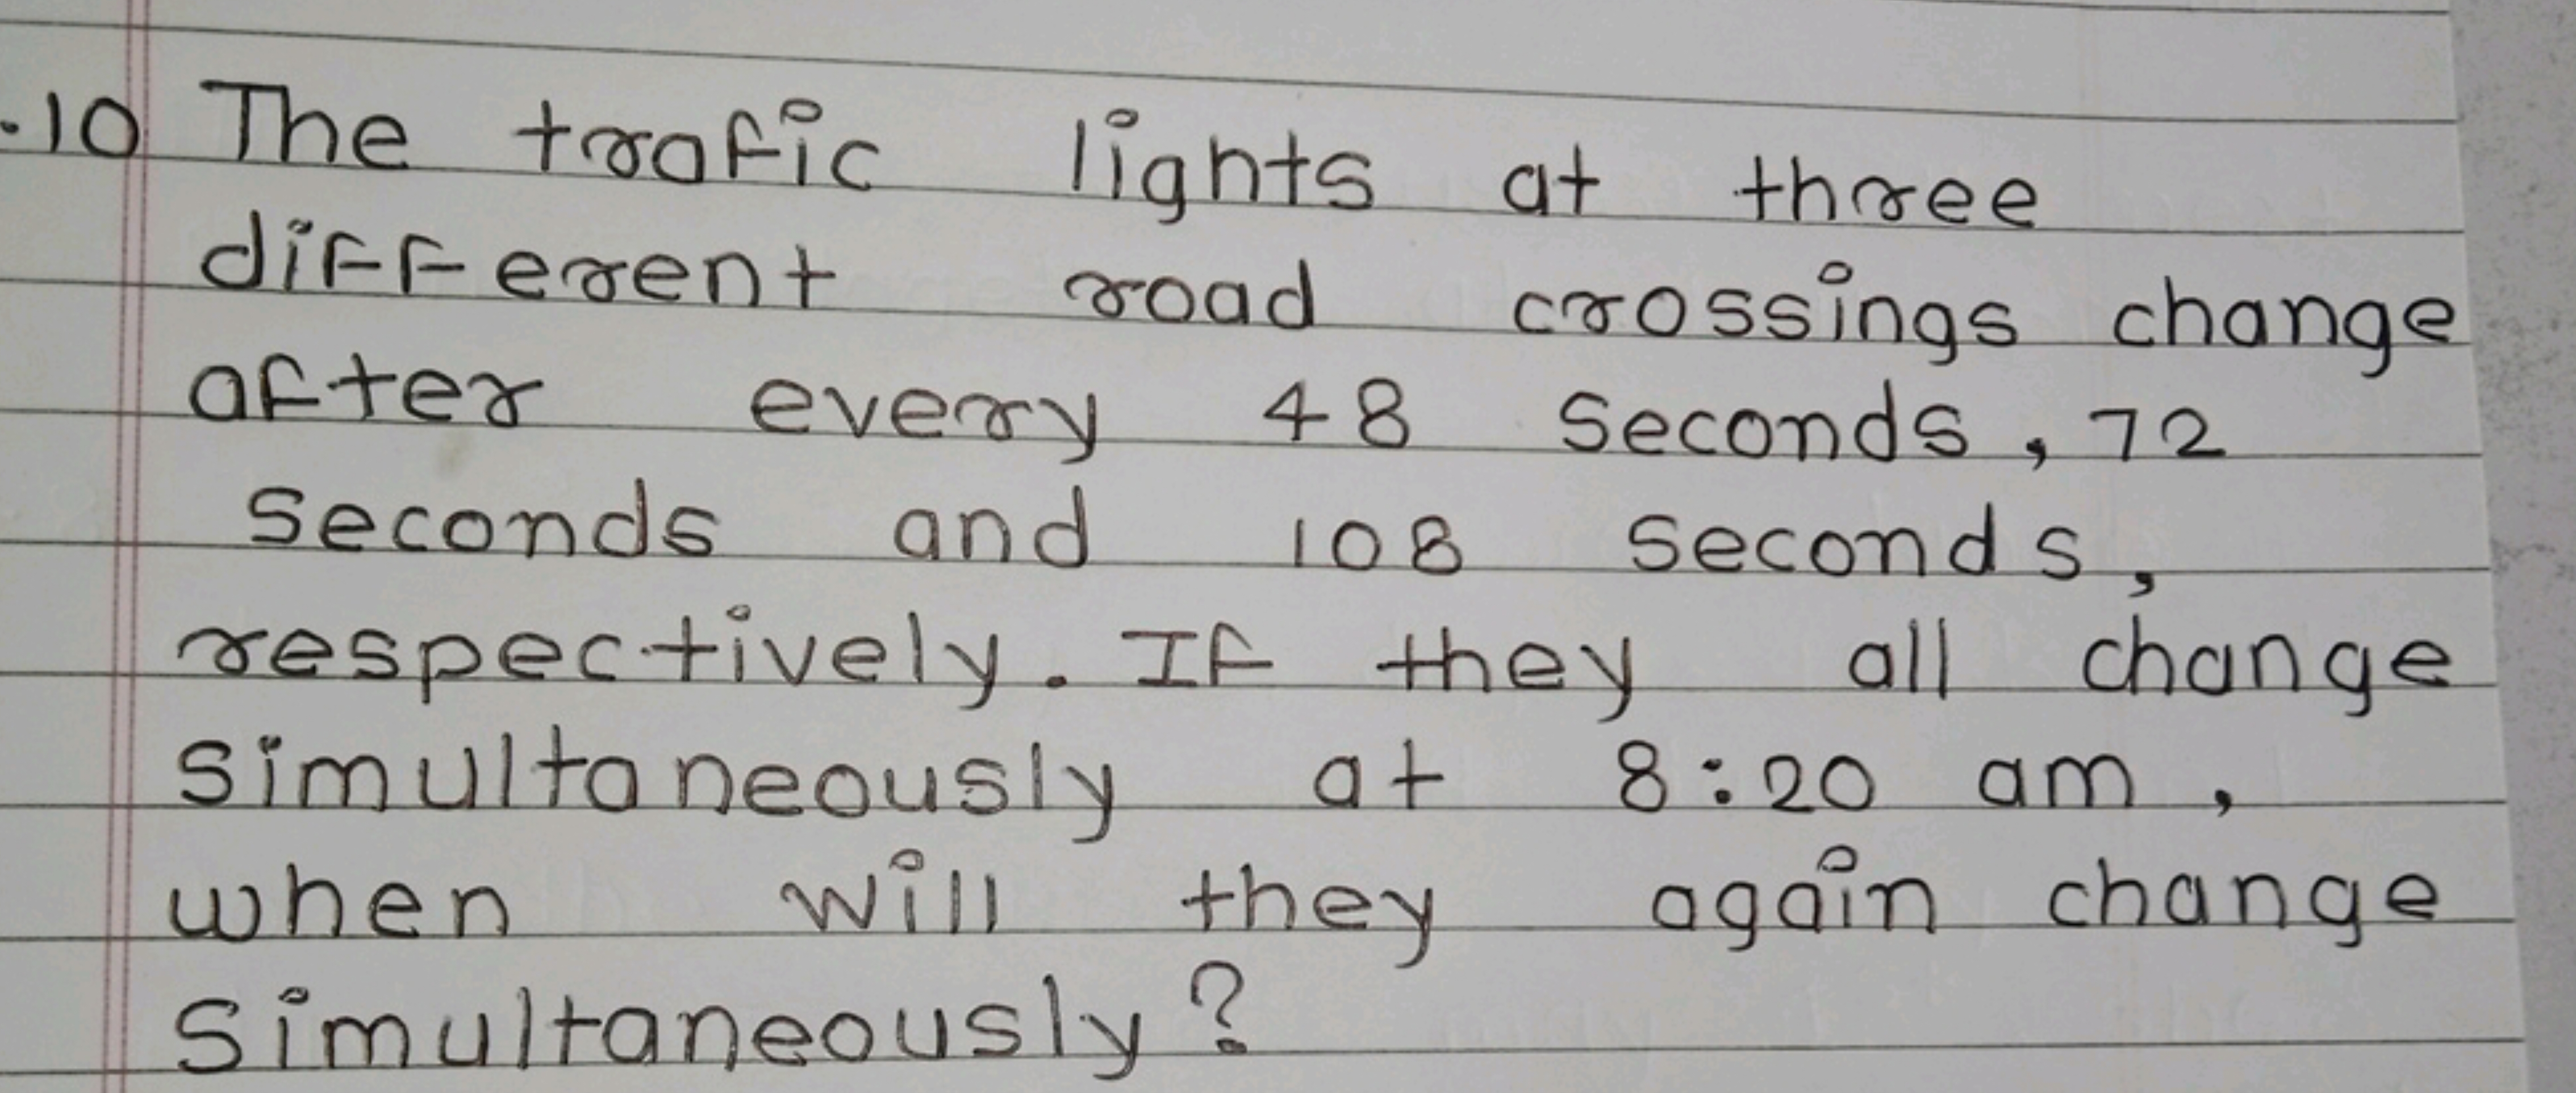 .10 The trafic lights at three
different road crossings change
after every 48 seconds, 72
seconds and 108 seconds,
respectively. If they all change
simultaneously at 8:20 am,
when will they again change
simultaneously?